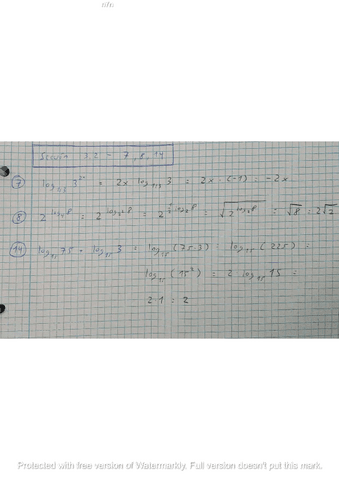 3.2 - 7, 8, 14
7 log_{1/3} 3^{2x} = 2x log_{1/3} 3 = 2x · (-1) = -2x
8 2^{log_4 8} = 2^{log_{2^2} 8} = 2^{1/2 log_2 8} = √(2^{log_2 8}) = √8 = 2√2
14 log_{15} 75 + log_{15} 3 = log_{15} (75·3) = log_{15} (225) =
log_{15} (15^2) = 2 log_{15} 15 =
2·1 = 2
Protected with free version of Watermarkly. Full version doesn't put this mark.